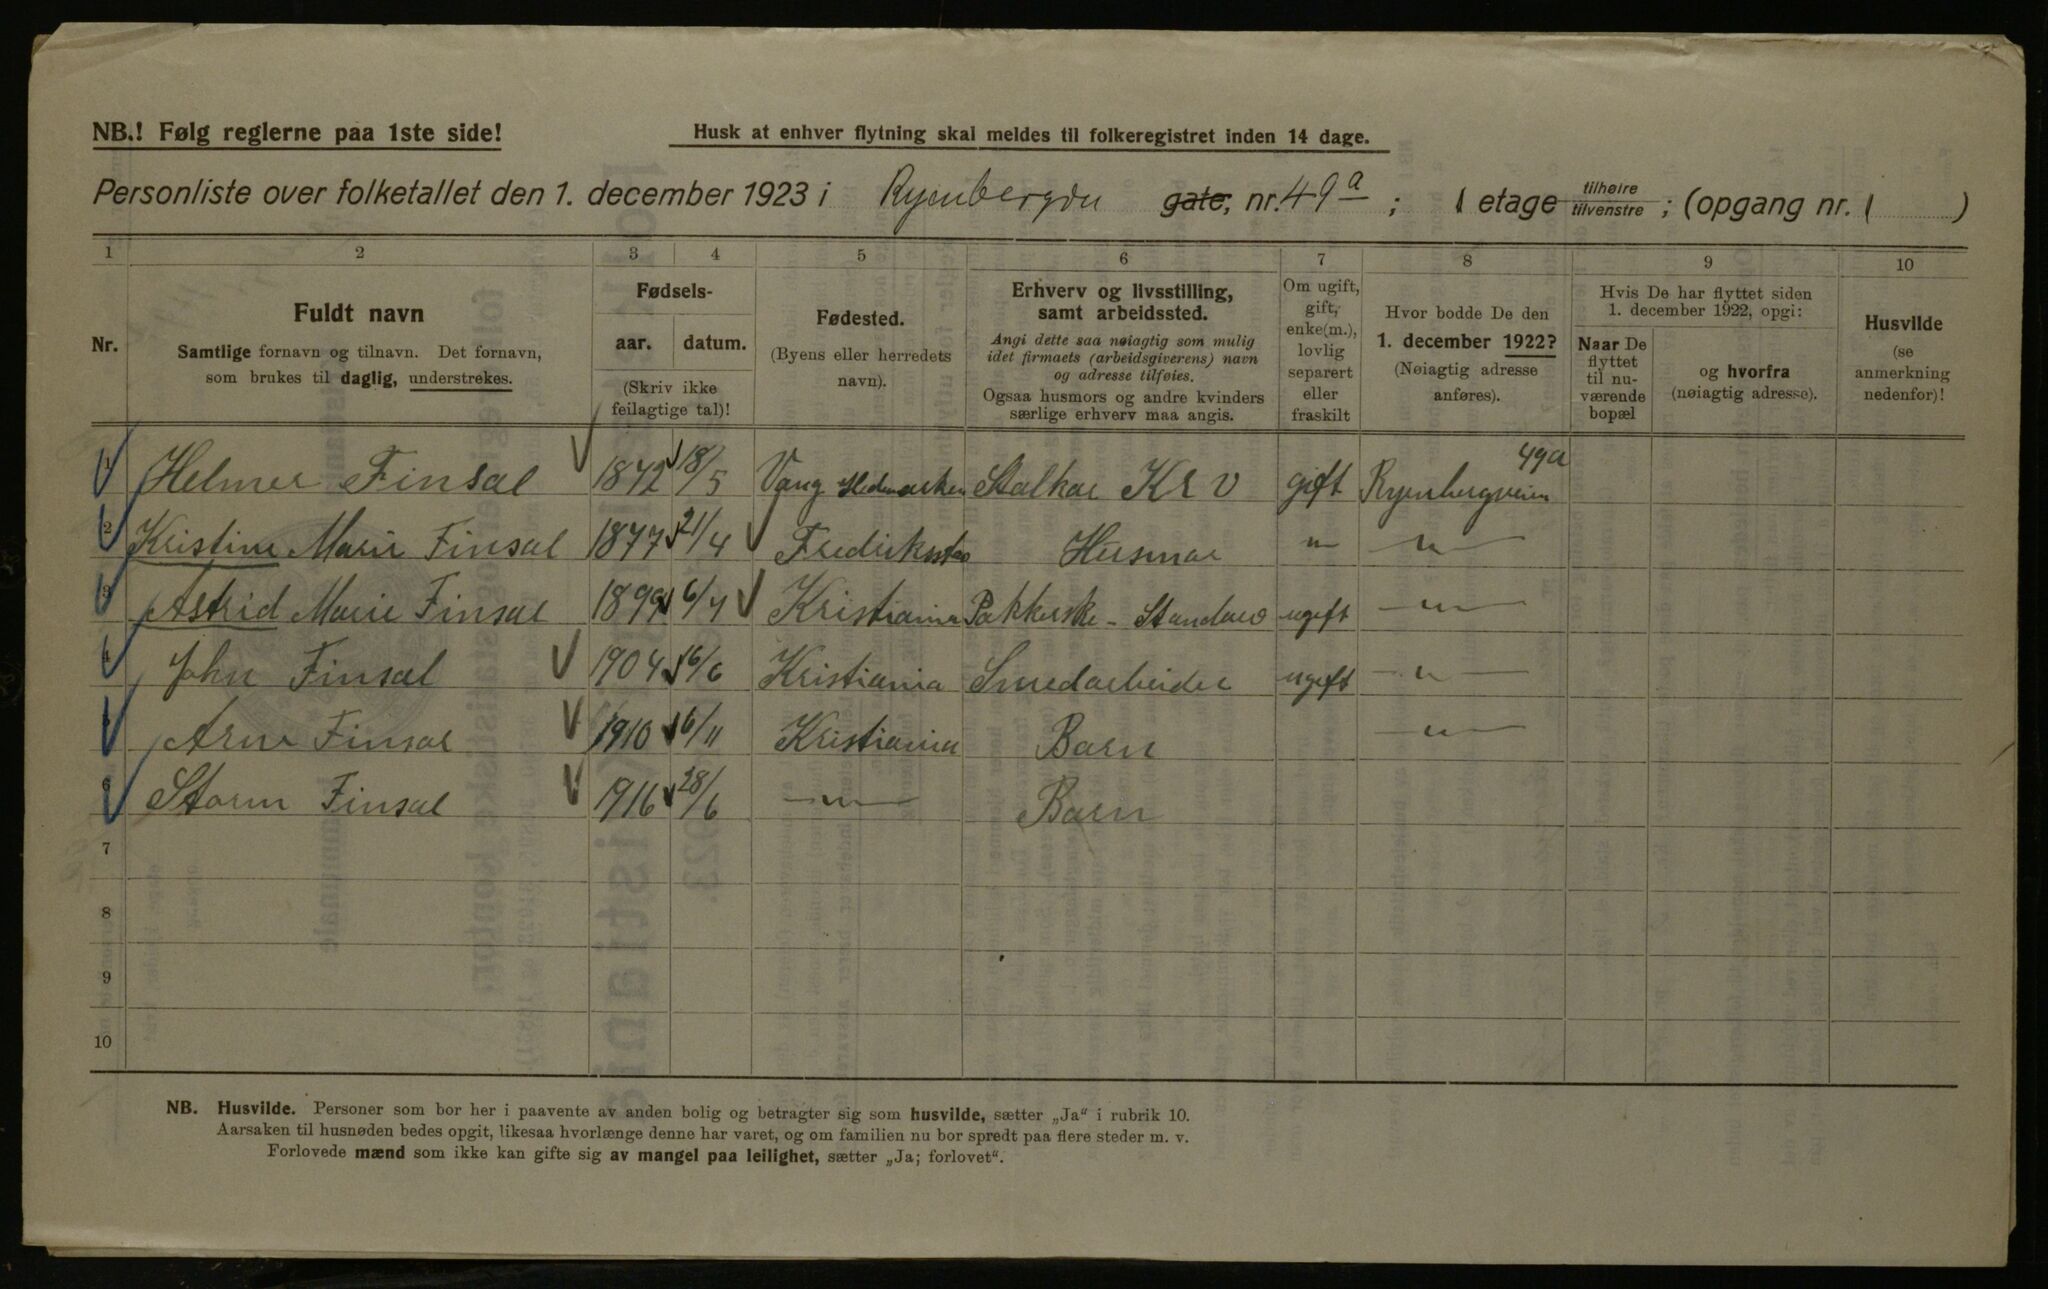 NB.! Følg reglerne paa 1ste side!
Husk at enhver flytning skal meldes til folkeregistret inden 14 dage.
Personliste over folketallet den 1. december 1923 i Ryenbergvn gate, nr. 49a ; 1 etage tilhøire tilvenstre ; (opgang nr. 1 )
1 2 3 4 5 6 7 8 9 10
Nr.
Fuldt navn
Samtlige fornavn og tilnavn. Det fornavn,
som brukes til daglig, understrekes.
Fødsels-
aar. datum.
(Skriv ikke
feilagtige tal)!
Fødested.
(Byens eller herredets
navn).
Erhverv og livsstilling,
samt arbeidssted.
Angi dette saa nøiagtig som mulig
idet firmaets (arbeidsgiverens) navn
og adresse tilføies.
Ogsaa husmors og andre kvinders
særlige erhverv maa angis.
Om ugift,
gift,
enke(m.),
lovlig
separert
eller
fraskilt
Hvor bodde De den
1. december 1922?
(Nøiagtig adresse
anføres).
Hvis De har flyttet siden
1. december 1922, opgi:
Naar De
flyttet
til nu-
værende
bopæl
og hvorfra
(nøiagtig adresse).
Husvilde
(se
anmerkning
nedenfor)!
1 Helmer Finsal 1872 18/5 Vang Hedmarken Stalkar K E V gift Ryenbergveien 49a
2 Kristine Marie Finsal 1877 21/4 Fredriksstad Husmor — " — — " —
3 Astrid Marie Finsal 1899 6/4 Kristiania Pakkerske - Standard ugift — " —
4 John Finsal 1904 16/6 Kristiania Smedarbeider ugift — " —
5 Arne Finsal 1910 6/11 Kristiania Barn — " —
6 Storm Finsal 1916 28/6 — " — Barn
7
8
9
10
NB. Husvilde. Personer som bor her i paavente av anden bolig og betragter sig som husvilde, sætter „Ja“ i rubrik 10.
Aarsaken til husnøden bedes opgit, likesaa hvorlænge denne har varet, og om familien nu bor spredt paa flere steder m. v.
Forlovede mænd som ikke kan gifte sig av mangel paa leilighet, sætter „Ja; forlovet“.